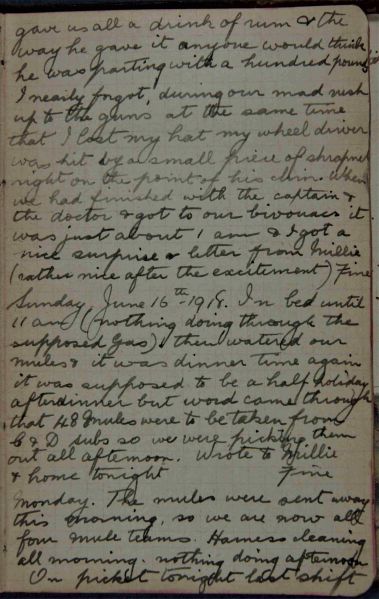 gave us all a drink of rum & the
way he gave it anyone would think
he was parting with a hundred pounds
I nearly forgot, during our mad rush
up to the guns at the same time
that I lost my hat my wheel driver
was hit by a small piece of shrapnel
right on the point of his chin. When
we had finished with the captain &
the doctor & got to our bivouacs it
was just about 1 am & I got a
nice surprise a letter from Millie
(rather nice after the excitement) Fine
Sunday June 16th 1918. In bed until
11 am (nothing doing through the
supposed gas) then watered our
mules & it was dinner time again
it was supposed to be a half holiday
after dinner but word came through
that 48 mules were to be taken from
C & D subs so we were picking them
out all afternoon. Wrote to Millie
& home tonight Fine
Monday. The mules were sent away
this morning, so we are now all
four mule teams. Harness cleaning
all morning, nothing doing afternoon
On picket tonight last shift